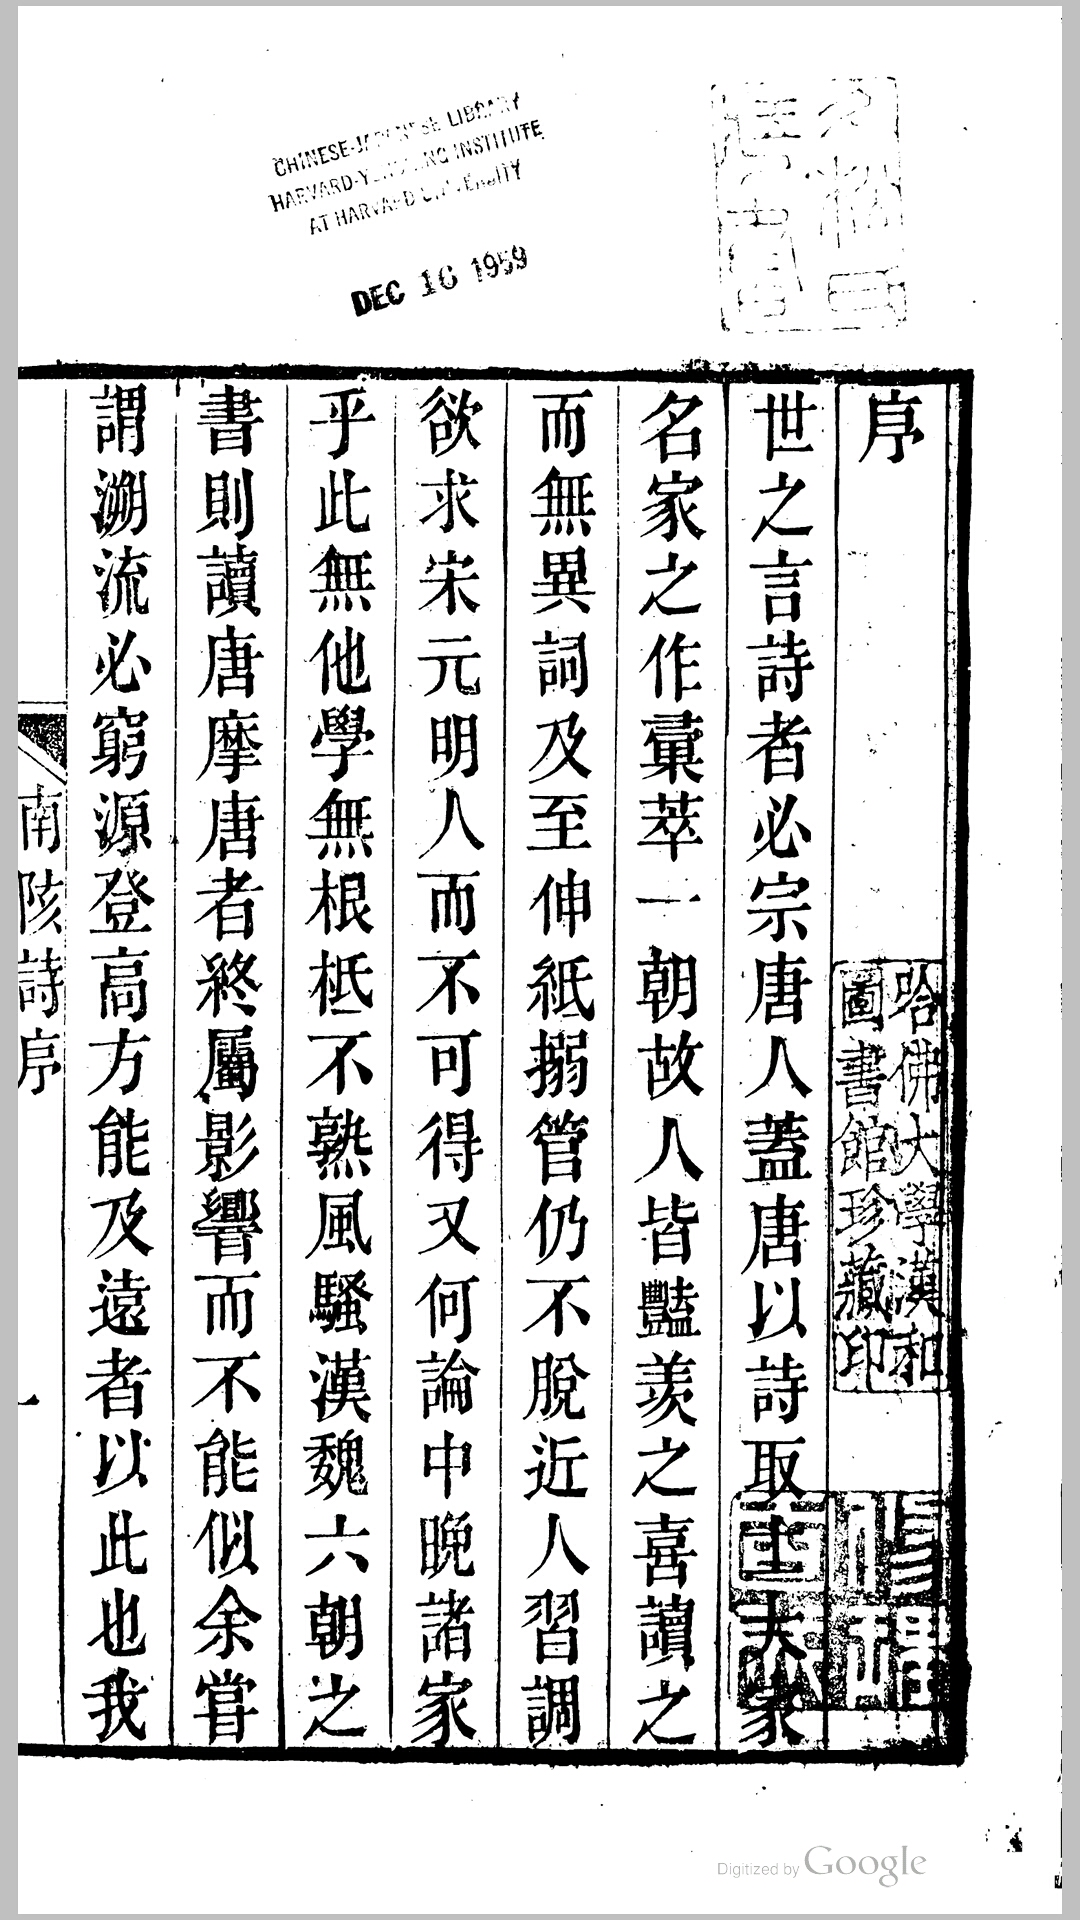 CHINESE-JAPANESE LIBRARY
HARVARD-YENCHING INSTITUTE
AT HARVARD UNIVERSITY
DEC 16 1959
序
哈佛大學漢和
圖書館珍藏印
世之言詩者必宗唐人蓋唐以詩取士大家
名家之作彙萃一朝故人皆豔羨之喜讀之
而無異詞及至伸紙搦管仍不脫近人習調
欲求宋元明人而不可得又何論中晚諸家
乎此無他學無根柢不熟風騷漢魏六朝之
書則讀唐摩唐者終屬影響而不能似余嘗
謂溯流必窮源登高方能及遠者以此也我
南陔詩序
一
Digitized by Google